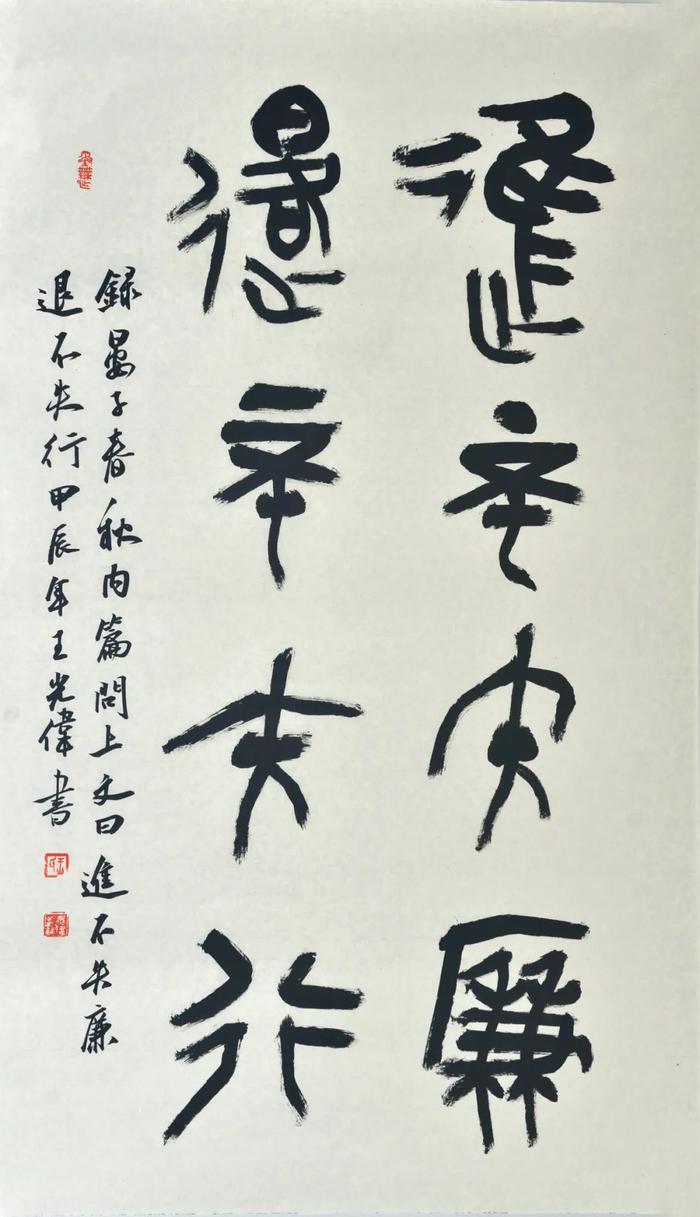 進不失廉
退不失行
録晏子春秋内篇問上文曰進不失廉
退不失行甲辰年王光偉書